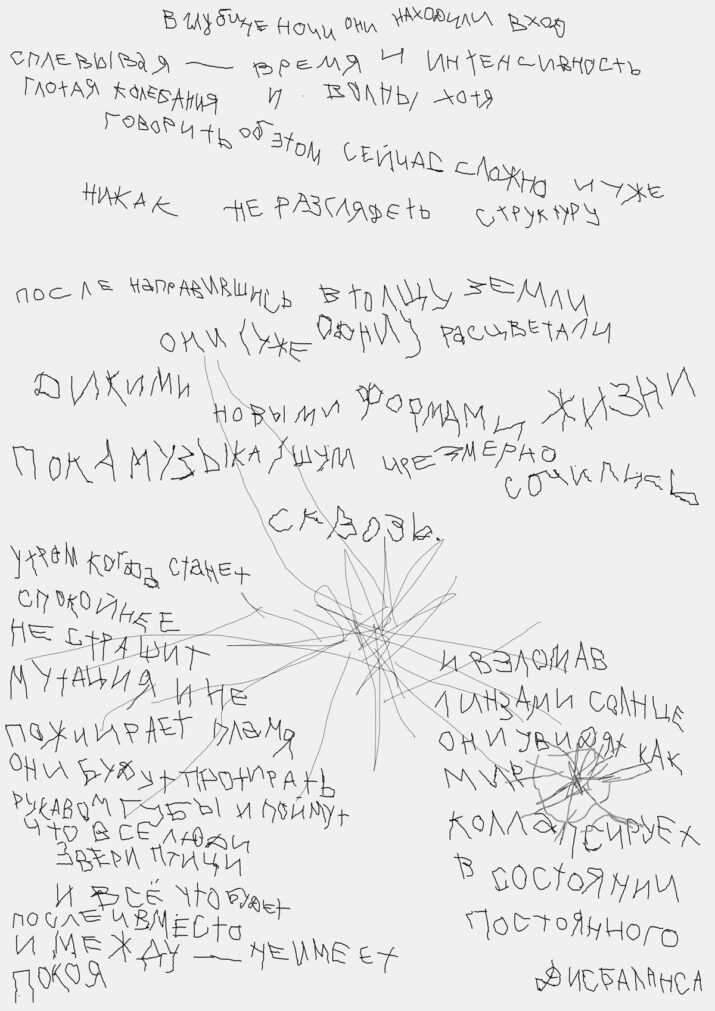 В глубине ночи они находили вход
сплевывая — время и интенсивность
глотая колебания и волны хотя
говорить об этом сейчас сложно и уже
никак не разглядеть структуру
после направившись в толщу земли
они (уже одни) расцветали
дикими
новыми формами жизни
пока музыка/шум чрезмерно
сочились
сквозь.
утром когда станет
спокойнее
не страшит
мутация и не
пожиирает пламя
они будут протирать
рукавом губы и поймут
что все люди
звери птици
и всё что будет
после и вместо
и между — не имеет
покоя
и взломав
линзами солнце
они увидят как
мир
коллапсирует
в состоянии
постоянного
дисбаланса